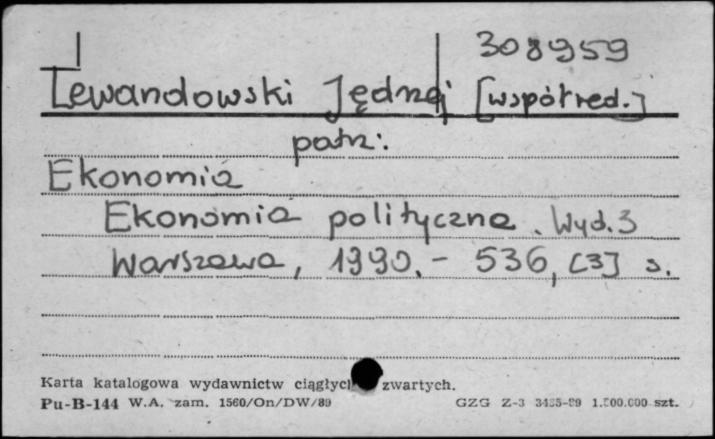 308959
Lewandowski Jędrzej [współred.]
patrz:
Ekonomia
Ekonomia polityczna. Wyd. 3
Warszawa, 1990. - 536, [3] s.
Karta katalogowa wydawnictw ciągłych zwartych.
Pu-B-144 W.A. zam. 1560/On/DW/89 GZG Z-3 1.500.000 szt.